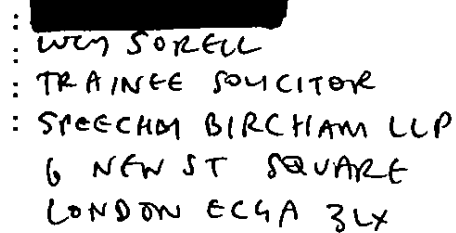 : LUCY SORELL
: TRAINEE SOLICITOR
: SPEECHLY BIRCHAM LLP
6 NEW ST SQUARE
LONDON EC4A 3LX